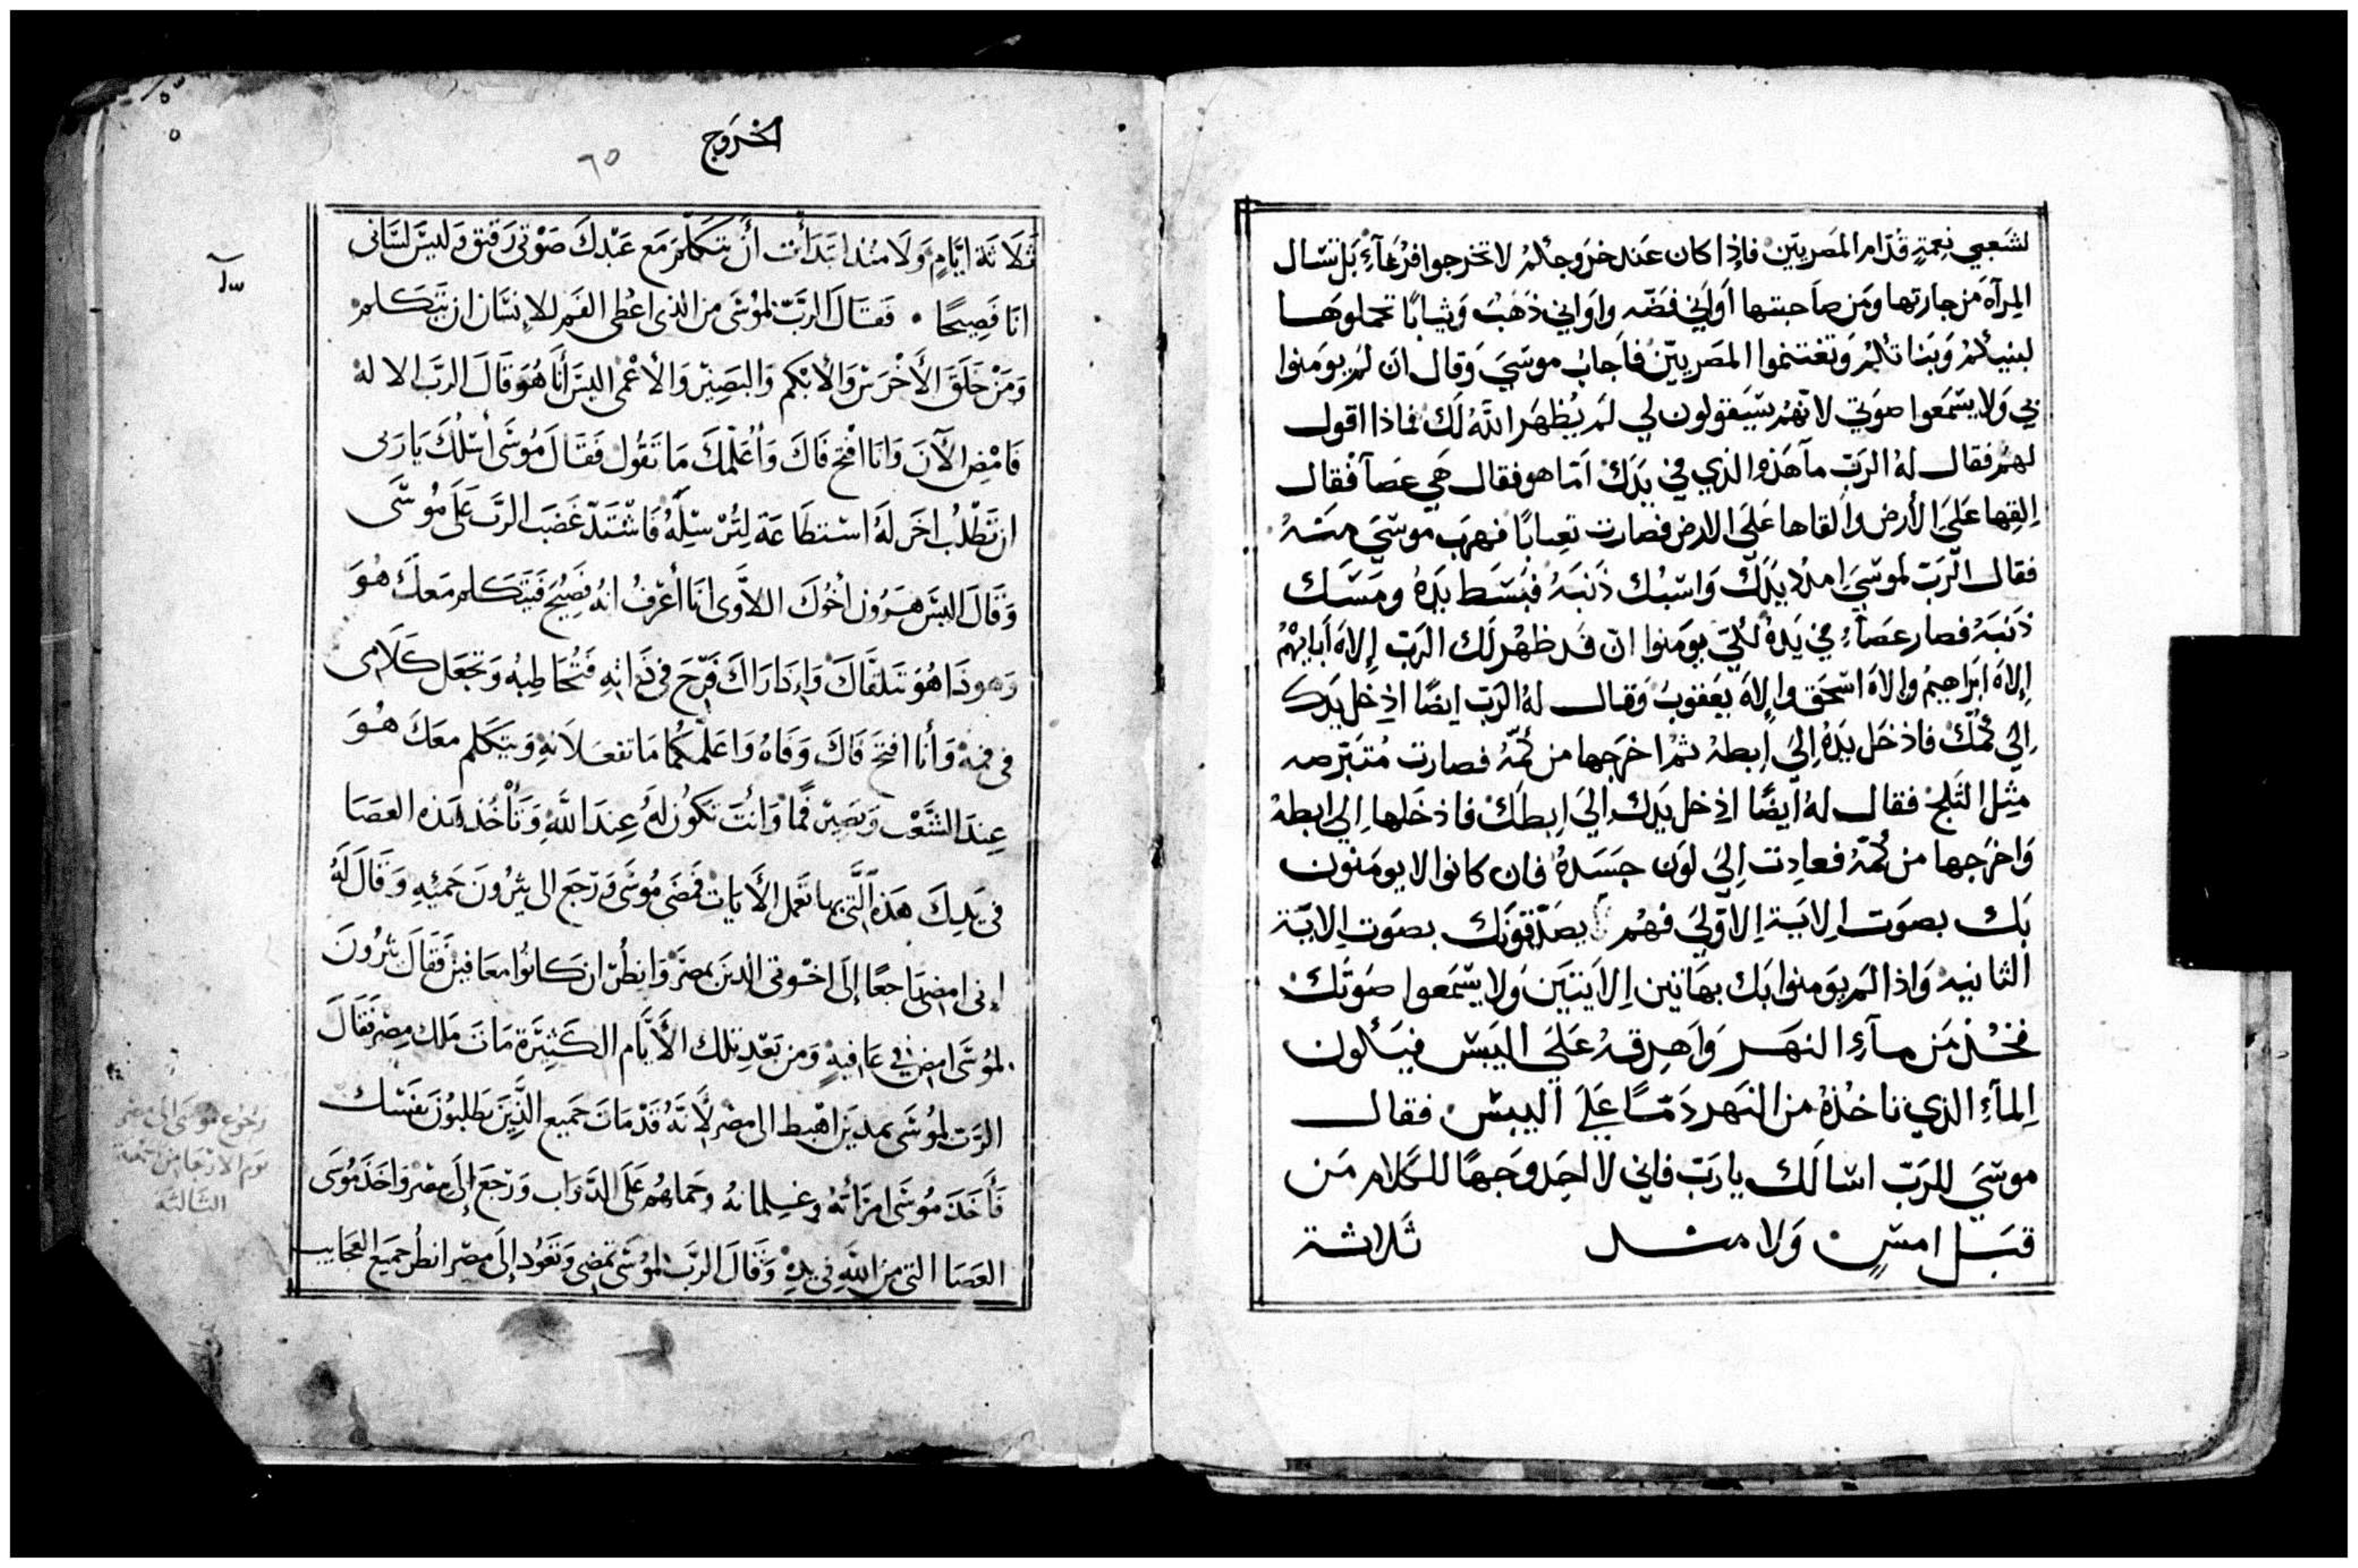 لشَعبي نِعمةٍ قدّام المَصريّين فإذا كان عَند خرَوجكمُ لا تخرجوا فرغآءِ بَل تسَال
المِرآة مَن جارتها ومَن صاحبتها أَوَاني فضَّه واوَاني ذَهبُ وَثيابًا تحملوهَا
لبنيكمُ وَبَنَاتكمُ وَتغتنموا المصَريّينَ فأجابُ موسَيَ وَقال ان لمَ يومَنوا
بي وَلا يسَّمَعوا صوَتي لانّهمُ سَيَقولون لي لمَ يُظهَر اللهُ لَك فماذا اقول
لهمُ فقال لهُ الرَبّ مآ هَذه الذي في يدَكَ امَّا هو فقال هَي عصَآ فقال
اِلقِها عَلَيَ الأرض وألقاها عَلَيَ الارض فصارت ثعبانًا فهرَب موسَيَ منهُ
فقال الرَبّ لموسَيَ امدُد يَدَكَ وَاسَبُك ذَنَبَهُ فبَسَط يَدهُ ومَسَك
ذَنَبَهُ فصار عَصَآءِ في يَدهُ لكيّ يومَنوا انّ قد ظهرَ لَك الرَبّ إلاهَ أبايهمُ
إلاهَ ابرَاهيمُ وإلاهَ اسَحَق وإلاهَ يعَقوبُ وَقال لهُ الرَبّ ايضًا ادخل يَدك
إلي كُمّك فادخَل يَدهُ إليَ إبطهُ ثمُ اخرَجها من كُمّهُ فصارت مُتبَرّصه
مثِل الثَلج فقال لهُ أيضًا ادخل يَدك اليَ إبطَكَ فادخَلها إلي ابطهُ
وَاخرَجها من كُمّهُ فعادت إليَ لوَن جسَدَهُ فان كانوا لا يومَنون
بَك بصوَت الايَة الاَوّليَ فهُم يصَدّقونَك بصوَت الايَة
الثانيه وَاذا لمَ يوَمنوا بَك بهَاتين الايَتيَن وَلا يسَّمَعوا صوَتَك
فخُذ مَن مآءِ النهَر وَاهرقهُ عَلَيَ اليَبسَ فيَكون
المآءِ الذي تاخذهُ من النَهر دَمًا عَلَيَ اليبسَ فقال
موسَيَ للرَبّ اسَالَك يا رَبّ فإني لا اجَد وَجهًا للكَلام مَن
قبَل امسٍ وَلا منذ ثلاثة
الخرَوج
٦٥
ثَلَاثَة ايَّامٍ وَلَا مُنذ ابتَدَأت أَنْ تتكَلَّمَ مَع عَبْدكَ صَوْتي رَقيق وَليسَ لسَاني
انَا فَصِيحًا ۰ فَقَالَ الرَّبّ لمُوسَى من الذى اعُطى الفَم للإنسَان ان يتَكلم
وَمَنْ خَلقَ الأَخْرَسَ وَالأَبْكم وَالبَصِيْر وَالأَعْمى اليسَ أَنَا هُوَ قَالَ الرَّبّ الالهُ
فَامْضِ الآنَ وَانَا افْتح فَاكَ وَأُعَلّمكَ مَا تَقُول فَقَالَ مُوسَى أسْئلُكَ يَا رَبى
ان تَطْلُب اخَر لهُ اسْتطَاعَة لِتُرْسِلَهُ فَاشْتَدَّ غَضَب الرَّب عَلَى مُوسَى
وَقَالَ اليسَ هَرُون أخُوكَ اللاَّوى انَا أعْرفُ انهُ فَصِيْح فَيَتَكلم مَعكَ هُوَ
وَهوذَا هُوَ يَتلقَّاكَ وَإذَا رَاكَ فَرَّحَ فى ذَاتِهِ فَتُخَاطِبهُ وَتجعَل كَلَامى
فى فمهِ وَأنا افتح فَاكَ وَفَاهُ وَاعَلّمكُمَا مَا تفعَلانهِ وَيتَكَلم معَكَ هُوَ
عِندَ الشَّعْب وَيَصِيْر فَمًا وَانْتَ تَكوُن لَهُ عِندَ اللَّهِ وَتأْخُذ هَذه العَصَا
فى يَدِكَ هَذه الَّتى بها تَعمل الأَيَات فَمَضَى مُوسَى وَرَجَعَ الى يثرُونَ حَميْهِ وَقَالَ لَهُ
إنى امضى رَاجعًا إلَى اخْوتى الذينَ بمصرَ وَانظُر ان كَانوُا معَافين فَقَالَ يثرُونَ
لمُوسَى امض في عَافيةٍ وَمن بَعْد تلك الأَيَّام الكَثِيْرَة مَاتَ مَلك مِصْر فَقَالَ
الرَّب لمُوسَى بمديَن اهْبط الى مصْر لأَنَّهُ قَدْ مَاتَ جَميع الَّذِينَ يَطلبوُنَ نفسَك
فَأَخَذَ مُوسَى امْرَأَتَهُ وغلمانهُ وحَملهُم عَلَى الدَّوَاب وَرَجَعَ إلَى مصْر وَاخَذ مُوسَى
العَصَا التى من اللهِ فى يدهِ وَقَالَ الرَّبّ لمُوسَى تمضى وَتعُود إلَى مصْر انظُر جميَع العَجَايب
رجوع موسى الى مصر
يوم الاربعا من جمعة
الثالثه